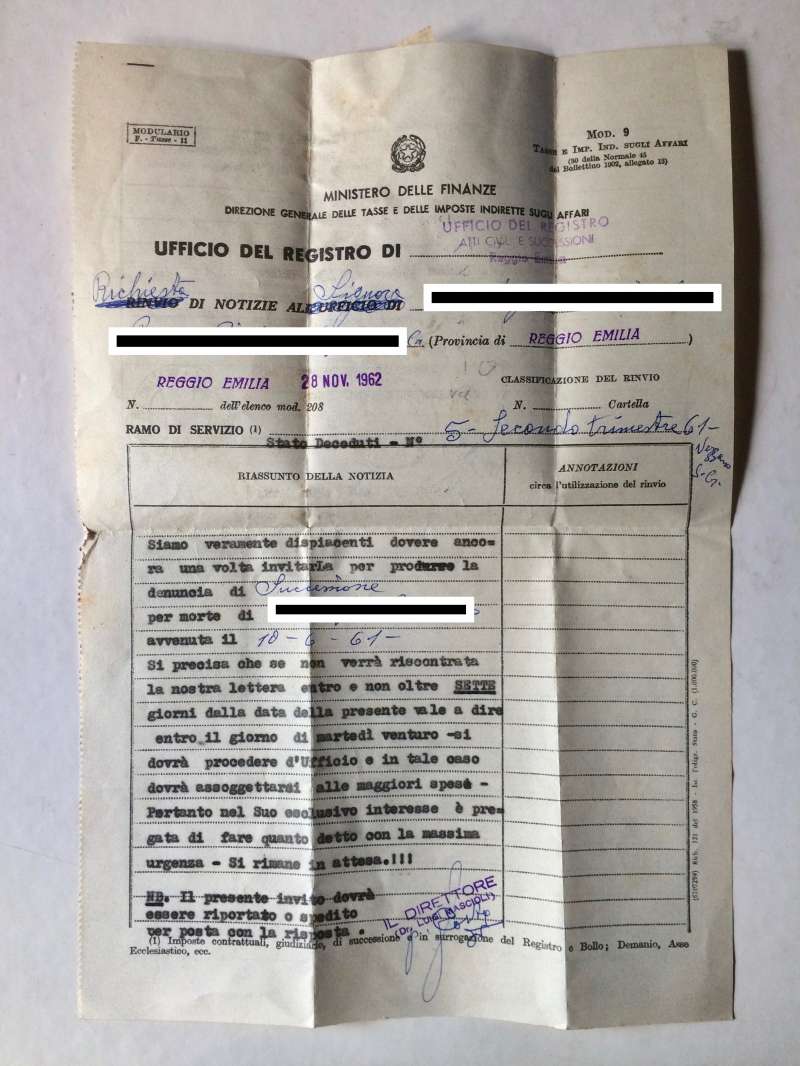 MODULARIO
F. - Tasse - 11
MOD. 9
TASSE E IMP. IND. SUGLI AFFARI
(30 della Normale 45
del Bollettino 1902, allegato 13)
MINISTERO DELLE FINANZE
DIREZIONE GENERALE DELLE TASSE E DELLE IMPOSTE INDIRETTE SUGLI AFFARI
UFFICIO DEL REGISTRO
ATTI CIVILI E SUCCESSIONI
Reggio Emilia
UFFICIO DEL REGISTRO DI
Richiesta Signora
RINVIO DI NOTIZIE ALL'UFFICIO DI
(Provincia di REGGIO EMILIA)
REGGIO EMILIA 28 NOV. 1962
CLASSIFICAZIONE DEL RINVIO
N. dell'elenco mod. 208 N. Cartella
RAMO DI SERVIZIO (1) Stato Deceduti - N° 5 - Secondo trimestre 61 -
RIASSUNTO DELLA NOTIZIA
ANNOTAZIONI
circa l'utilizzazione del rinvio
Siamo veramente dispiacenti dovere anco=
ra una volta invitarLa per produrre la
denuncia di Successione
per morte di
avvenuta il 18-6-61-
Si precisa che se non verrà riscontrata
la nostra lettera entro e non oltre SETTE
giorni dalla data della presente vale a dire
entro il giorno di martedì venturo -si
dovrà procedere d'Ufficio e in tale caso
dovrà assoggettarsi alle maggiori spese -
Pertanto nel Suo esclusivo interesse è pre=
gata di fare quanto detto con la massima
urgenza - Si rimane in attesa.!!!
NB. Il presente invito dovrà
essere riportato o spedito
per posta con la risposta.
IL DIRETTORE
(1) Imposte contrattuali, giudiziarie, di successione e in surrogazione del Registro e Bollo; Demanio, Asse
Ecclesiastico, ecc.